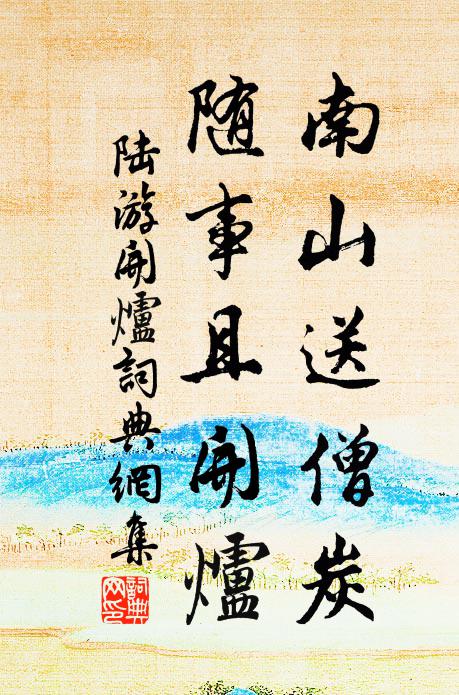 南山送僧炭
随事且開爐
陆游開爐詞典網集
詞典